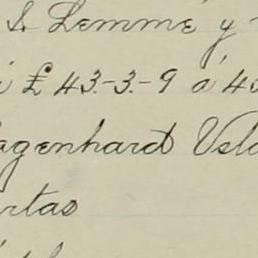 S. Lemme y
£ 43.-3.-9 á 48
agenhardt Vela
rtas